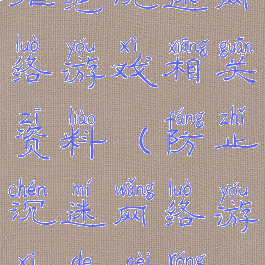 luò yóu xì xiāng guān
络游戏相关
zī liào fáng zhǐ
资料（防止
chén mí wǎng luò yóu
沉迷网络游
xì de nèi róng